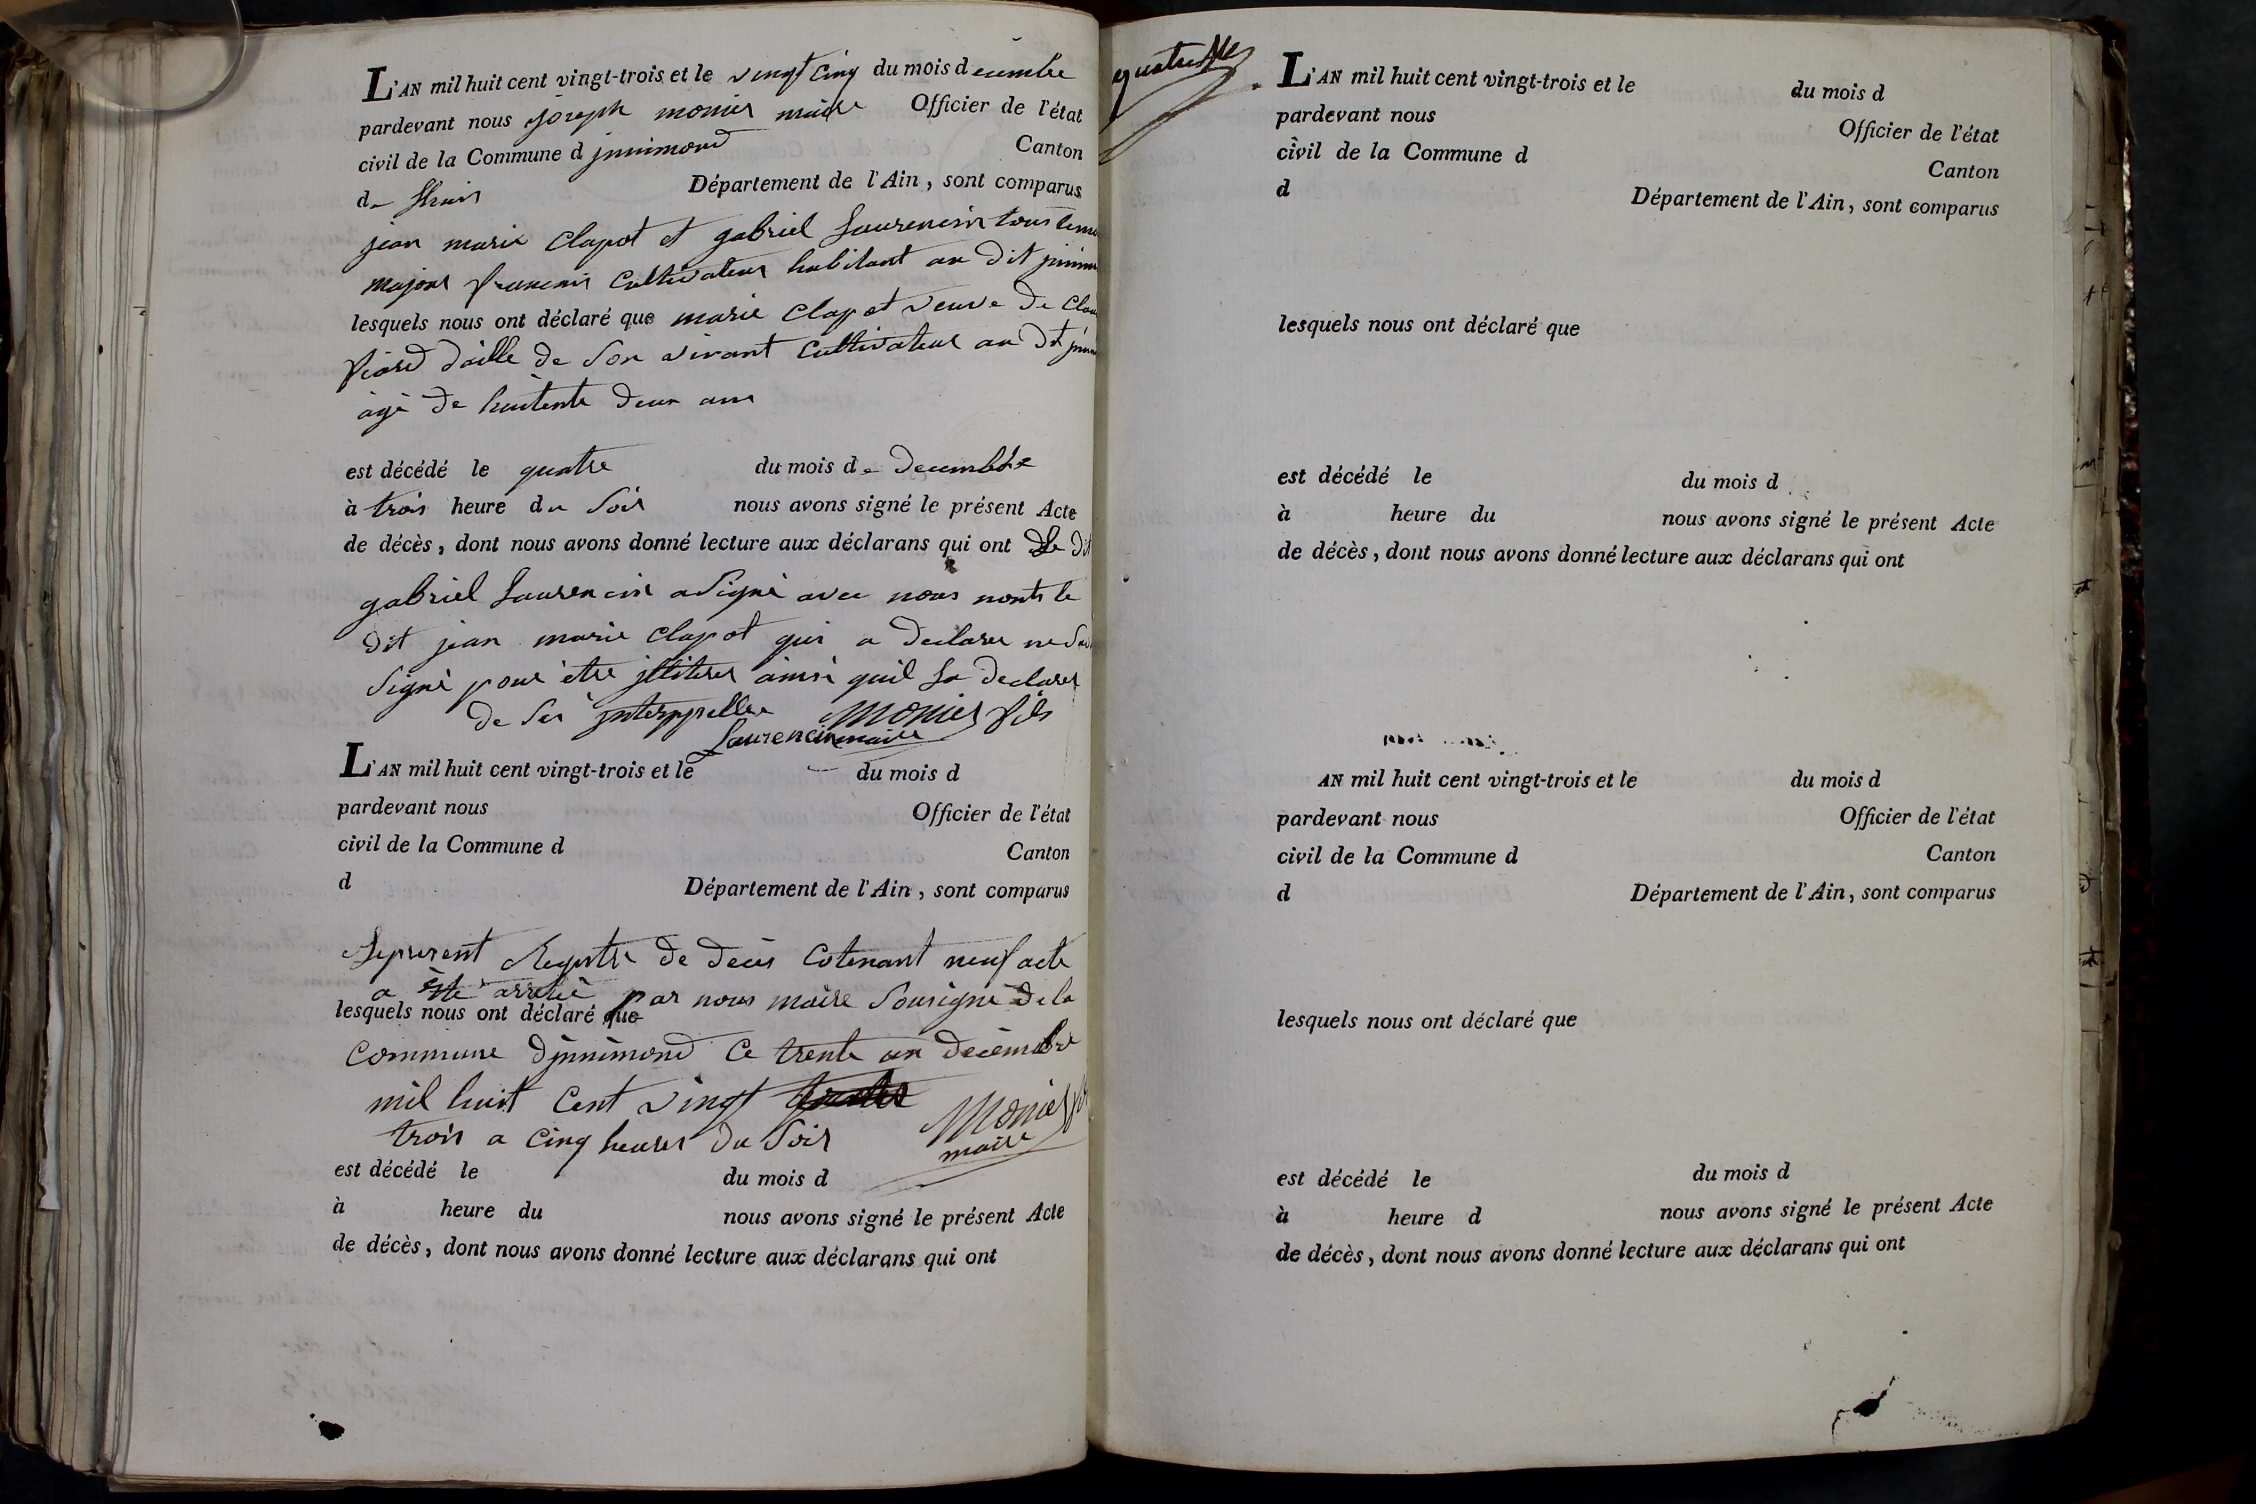 L'AN mil huit cent vingt-trois et le vingt cinq du mois d ecembre
pardevant nous joseph monier maire Officier de l'état
civil de la Commune d jnnimond Canton
de lhuis Département de l'Ain, sont comparus
jean marie Clapot et gabriel Laurencin tous
majeurs francais Cultivateur habitant au dit
lesquels nous ont déclaré que marie Clapot veuve de
de Son vivant Cultivateur au dt
agé de huitente deux ans
est décédé le quatre du mois de decembre
à trois heure du Soir nous avons signé le présent Acte
de décès, dont nous avons donné lecture aux déclarans qui ont Le dit
gabriel Laurencin a Signé avec nous le
dit jean marie Clapot qui a declarer ne
Signé pour être jlliterer ainsi quil La declarer
de Ses jnterppeller Monier fils
Laurencin maire
L'AN mil huit cent vingt-trois et le du mois d
pardevant nous Officier de l'état
civil de la Commune d Canton
d Département de l'Ain, sont comparus
Le present Registre de deces Cotenant neuf acte
a été arreté par nous maire Sousigné de la
lesquels nous ont déclaré que
Commune djnnimond Ce trente un decembre
mil huit Cent vingt
trois a Cinq heures du Soir Monier
maire
est décédé le du mois d
à heure du nous avons signé le présent Acte
de décès, dont nous avons donné lecture aux déclarans qui ont
L'AN mil huit cent vingt-trois et le du mois d
pardevant nous Officier de l'état
civil de la Commune d Canton
d Département de l'Ain, sont comparus
lesquels nous ont déclaré que
est décédé le du mois d
à heure du nous avons signé le présent Acte
de décès, dont nous avons donné lecture aux déclarans qui ont
AN mil huit cent vingt-trois et le du mois d
pardevant nous Officier de l'état
civil de la Commune d Canton
d Département de l'Ain, sont comparus
lesquels nous ont déclaré que
est décédé le du mois d
à heure d nous avons signé le présent Acte
de décès, dont nous avons donné lecture aux déclarans qui ont